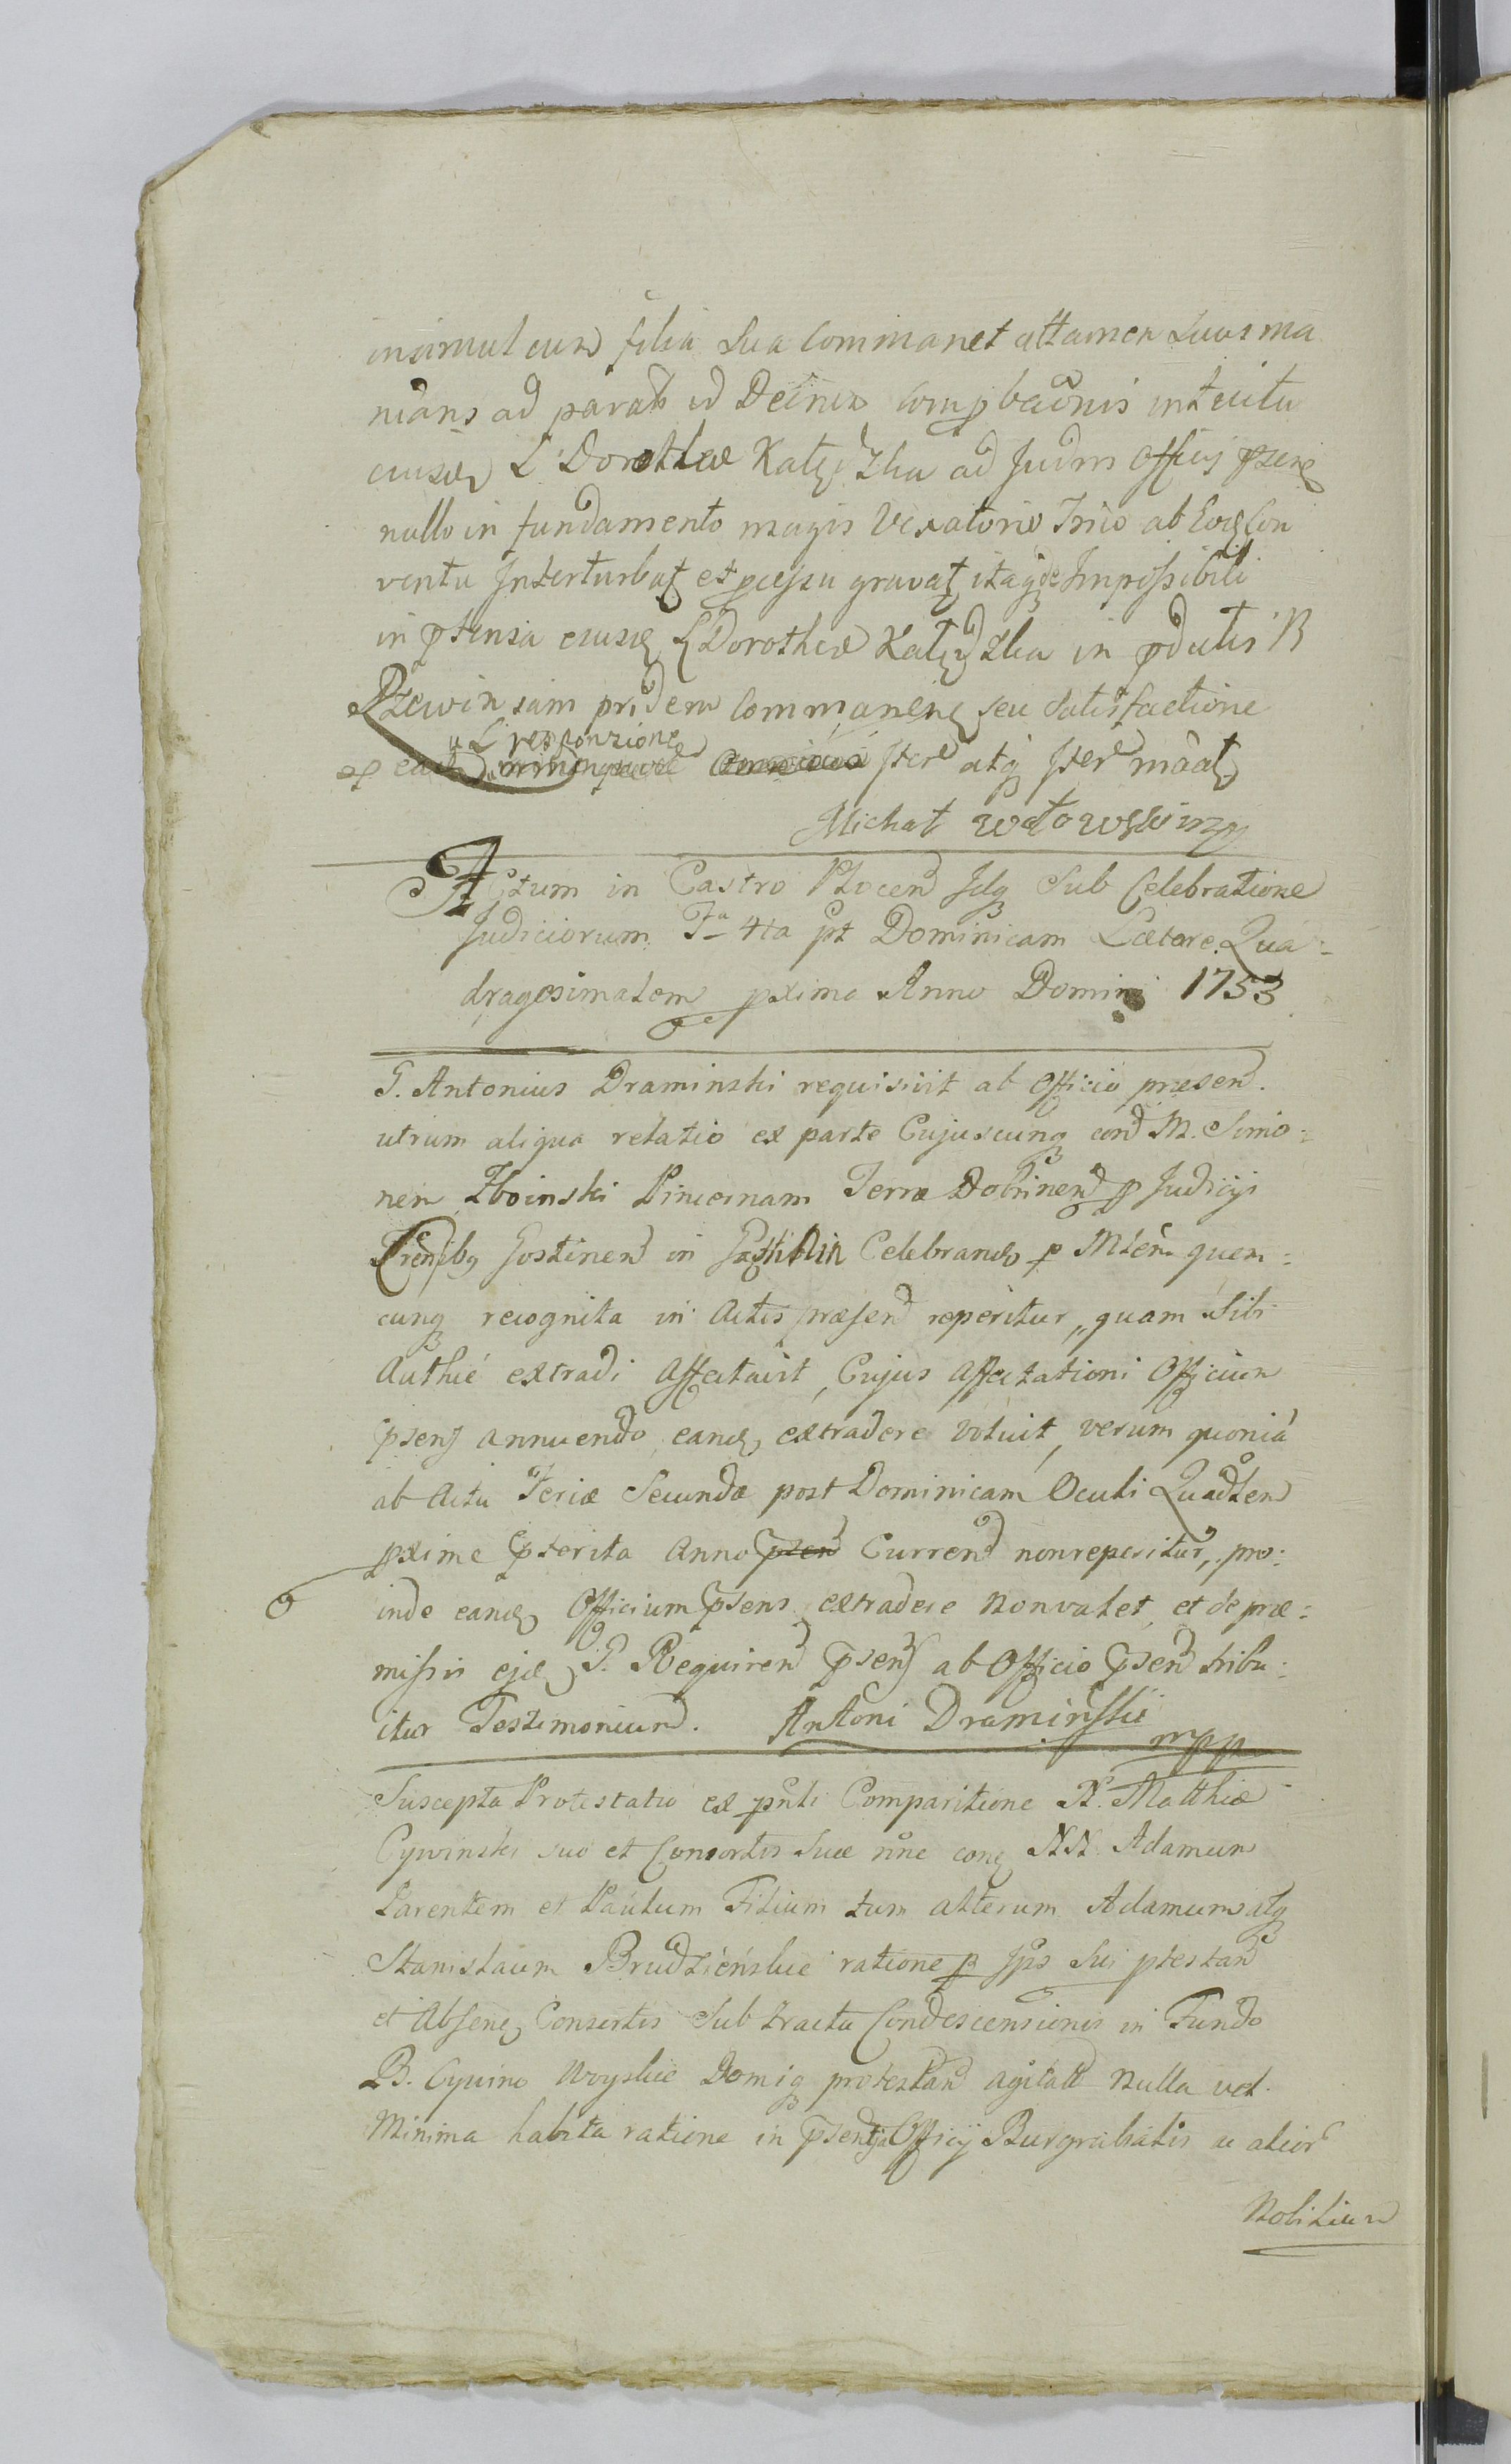 insimul cum filia sua Commanet attamen Suus ma
nians ad parat id Decrea Compbaõnis intuitu
eiusd L Dorotheæ Kałędzka ad Judm Officij psens
nullo in fundamento magis Vexatorio Trico ab Eod Con
ventu Interturbat et pcessu gravat itaq de Impossibili
in ptensa eiusd L Dorotheæ Kałędzka in pdutis B
Rzewin iam pridem Commanent seu satisfactione
a L responzione
Iter atq Iter maat
Michał Watowski mp
Actum in Castro Plocen Idq Sub Celebratione
Judiciorum Fa 4ta pt Dominicam Lætare Qua-
dragesimalem pxima Anno Domini 1753
G. Antonius Draminski requisivit ab Officio præsen.
utrum aliqua relatio ex parte Cujuscunq cond M. Simo-
nem Zboinski Pincernam Terræ Dobrinen p Judicijs
Tren̄ibq Gostinen in Gąbin Celebrando p Mlem quem-
cunq recognita in Actis præsen reperitur, quam Sibi
Authce extradi affectavit, Cujus affectationi Officium
psens annuendo eand, extradere voluit, verum quonia
ab Actu Feriæ Secundæ post Dominicam Oculi Quadlem
pxime pterita Anno psen Curren non reperitur, pro-
inde eand Officium psens extradere non valet, et de præ-
missis ejd G. Requiren psens ab Officio psen tribu-
itur Testimonium. Antoni Dramiński
mpp
Suscepta Protestatio ex pnti Comparitione N. Matthiæ
Cywinski suo et Consortis Suæ nne con NN. Adamum
Parentem et Paulum Filium tum alterum Adamum atq
Stanislaum Brudzieńskie ratione p Ips Sui ptestan
et Absen Consortis Sub tractu Condescensionis in Fundo
B. Cywino Woyskie Domiq protestan agitatæ Nulla vel
Minima habita ratione in psentia Officij Burgrabialis ac alior
Nobilium